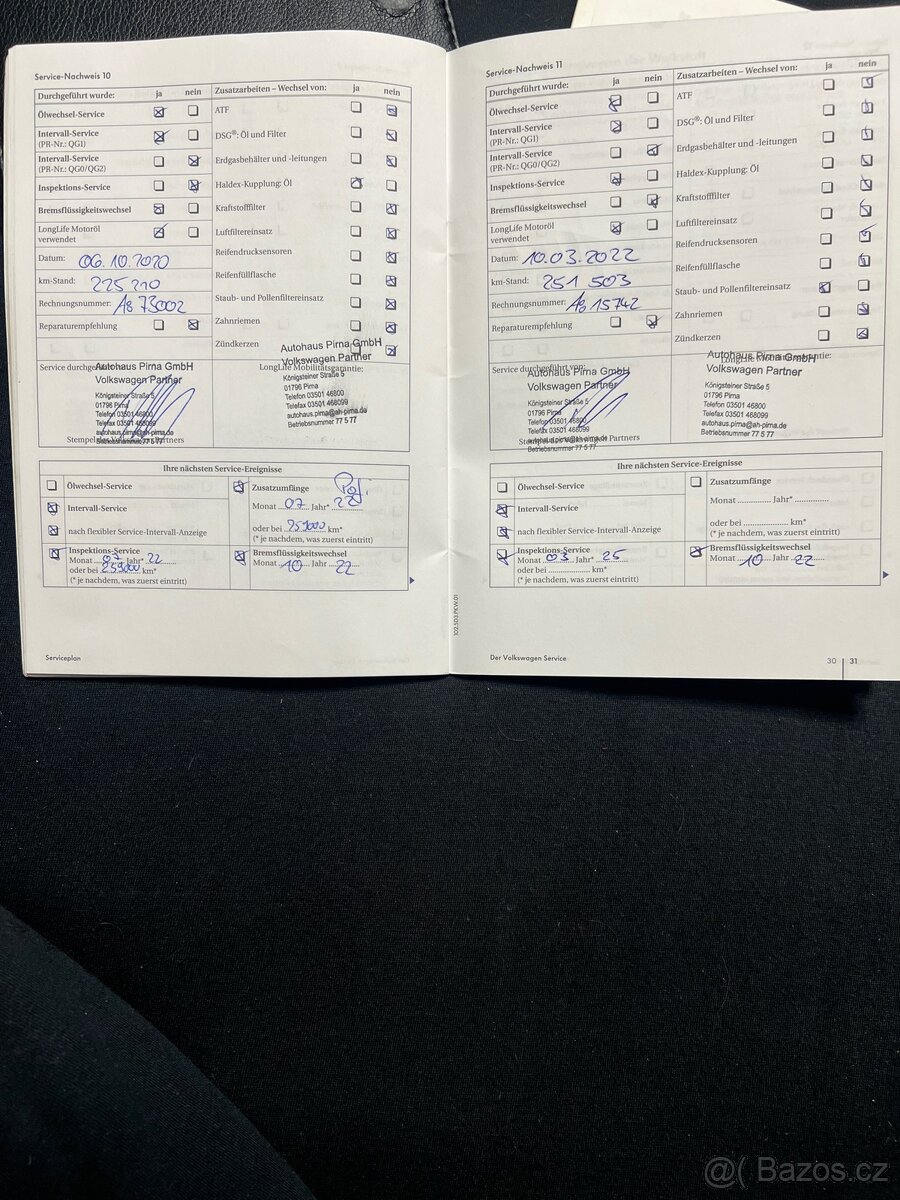 Service-Nachweis 10
Durchgeführt wurde: ja nein
Ölwechsel-Service
Intervall-Service
(PR-Nr.: QG1)
Intervall-Service
(PR-Nr.: QG0/QG2)
Inspektions-Service
Bremsflüssigkeitswechsel
LongLife Motoröl
verwendet
Datum: 06.10.2020
km-Stand: 225 210
Rechnungsnummer: AB 73002
Reparaturempfehlung
Zusatzarbeiten – Wechsel von: ja nein
ATF
DSG®: Öl und Filter
Erdgasbehälter und -leitungen
Haldex-Kupplung: Öl
Kraftstofffilter
Luftfiltereinsatz
Reifendrucksensoren
Reifenfüllflasche
Staub- und Pollenfiltereinsatz
Zahnriemen
Zündkerzen
Service durchgeführt
Autohaus Pirna GmbH
Volkswagen Partner
Königsteiner Straße 5
01796 Pirna
Telefon 03501 46800
Telefax 03501 468099
autohaus.pirna@ah-pirna.de
Betriebsnummer 77 5 77
Stempel des Partners
LongLife Mobilitätsgarantie:
Autohaus Pirna GmbH
Volkswagen Partner
Königsteiner Straße 5
01796 Pirna
Telefon 03501 46800
Telefax 03501 468099
autohaus.pirna@ah-pirna.de
Betriebsnummer 77 5 77
Ihre nächsten Service-Ereignisse
Ölwechsel-Service
Intervall-Service
nach flexibler Service-Intervall-Anzeige
Inspektions-Service
Monat 07 Jahr* 22
oder bei 259000 km*
(* je nachdem, was zuerst eintritt)
Zusatzumfänge
Monat 07 Jahr* 22
oder bei 259000 km*
(* je nachdem, was zuerst eintritt)
Bremsflüssigkeitswechsel
Monat 10 Jahr 22
Serviceplan
102.5D3.PKW.01
Service-Nachweis 11
Durchgeführt wurde: ja nein
Ölwechsel-Service
Intervall-Service
(PR-Nr.: QG1)
Intervall-Service
(PR-Nr.: QG0/QG2)
Inspektions-Service
Bremsflüssigkeitswechsel
LongLife Motoröl
verwendet
Datum: 10.03.2022
km-Stand: 251 503
Rechnungsnummer: 15742
Reparaturempfehlung
Zusatzarbeiten – Wechsel von: ja nein
ATF
DSG®: Öl und Filter
Erdgasbehälter und -leitungen
Haldex-Kupplung: Öl
Kraftstofffilter
Luftfiltereinsatz
Reifendrucksensoren
Reifenfüllflasche
Staub- und Pollenfiltereinsatz
Zahnriemen
Zündkerzen
Service durchgeführt von:
Autohaus Pirna GmbH
Volkswagen Partner
Königsteiner Straße 5
01796 Pirna
Telefon 03501 46800
Telefax 03501 468099
autohaus.pirna@ah-pirna.de
Betriebsnummer 77 5 77
Stempel des Volkswagen Partners
Autohaus Pirna GmbH
Volkswagen Partner
Königsteiner Straße 5
01796 Pirna
Telefon 03501 46800
Telefax 03501 468099
autohaus.pirna@ah-pirna.de
Betriebsnummer 77 5 77
Ihre nächsten Service-Ereignisse
Ölwechsel-Service
Intervall-Service
nach flexibler Service-Intervall-Anzeige
Inspektions-Service
Monat 03 Jahr* 25
oder bei .................... km*
(* je nachdem, was zuerst eintritt)
Zusatzumfänge
Monat ............ Jahr* ..............
oder bei .................... km*
(* je nachdem, was zuerst eintritt)
Bremsflüssigkeitswechsel
Monat 10 Jahr 22
Der Volkswagen Service
30 31
@( Bazos.cz